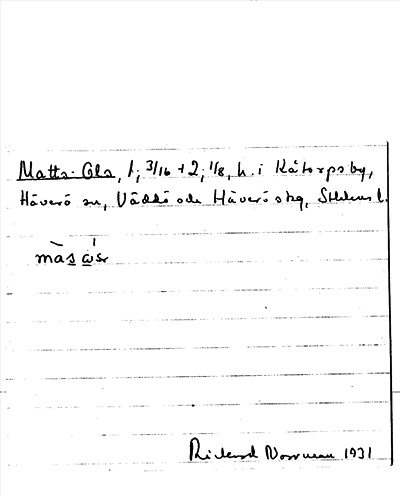 Matts-Ols, 1; 3/16 + 2; 1/8, h. i Kåtorps by,
Häverö sn, Väddö och Häverö skg, Sthlms l.
Rickard Norrman 1931